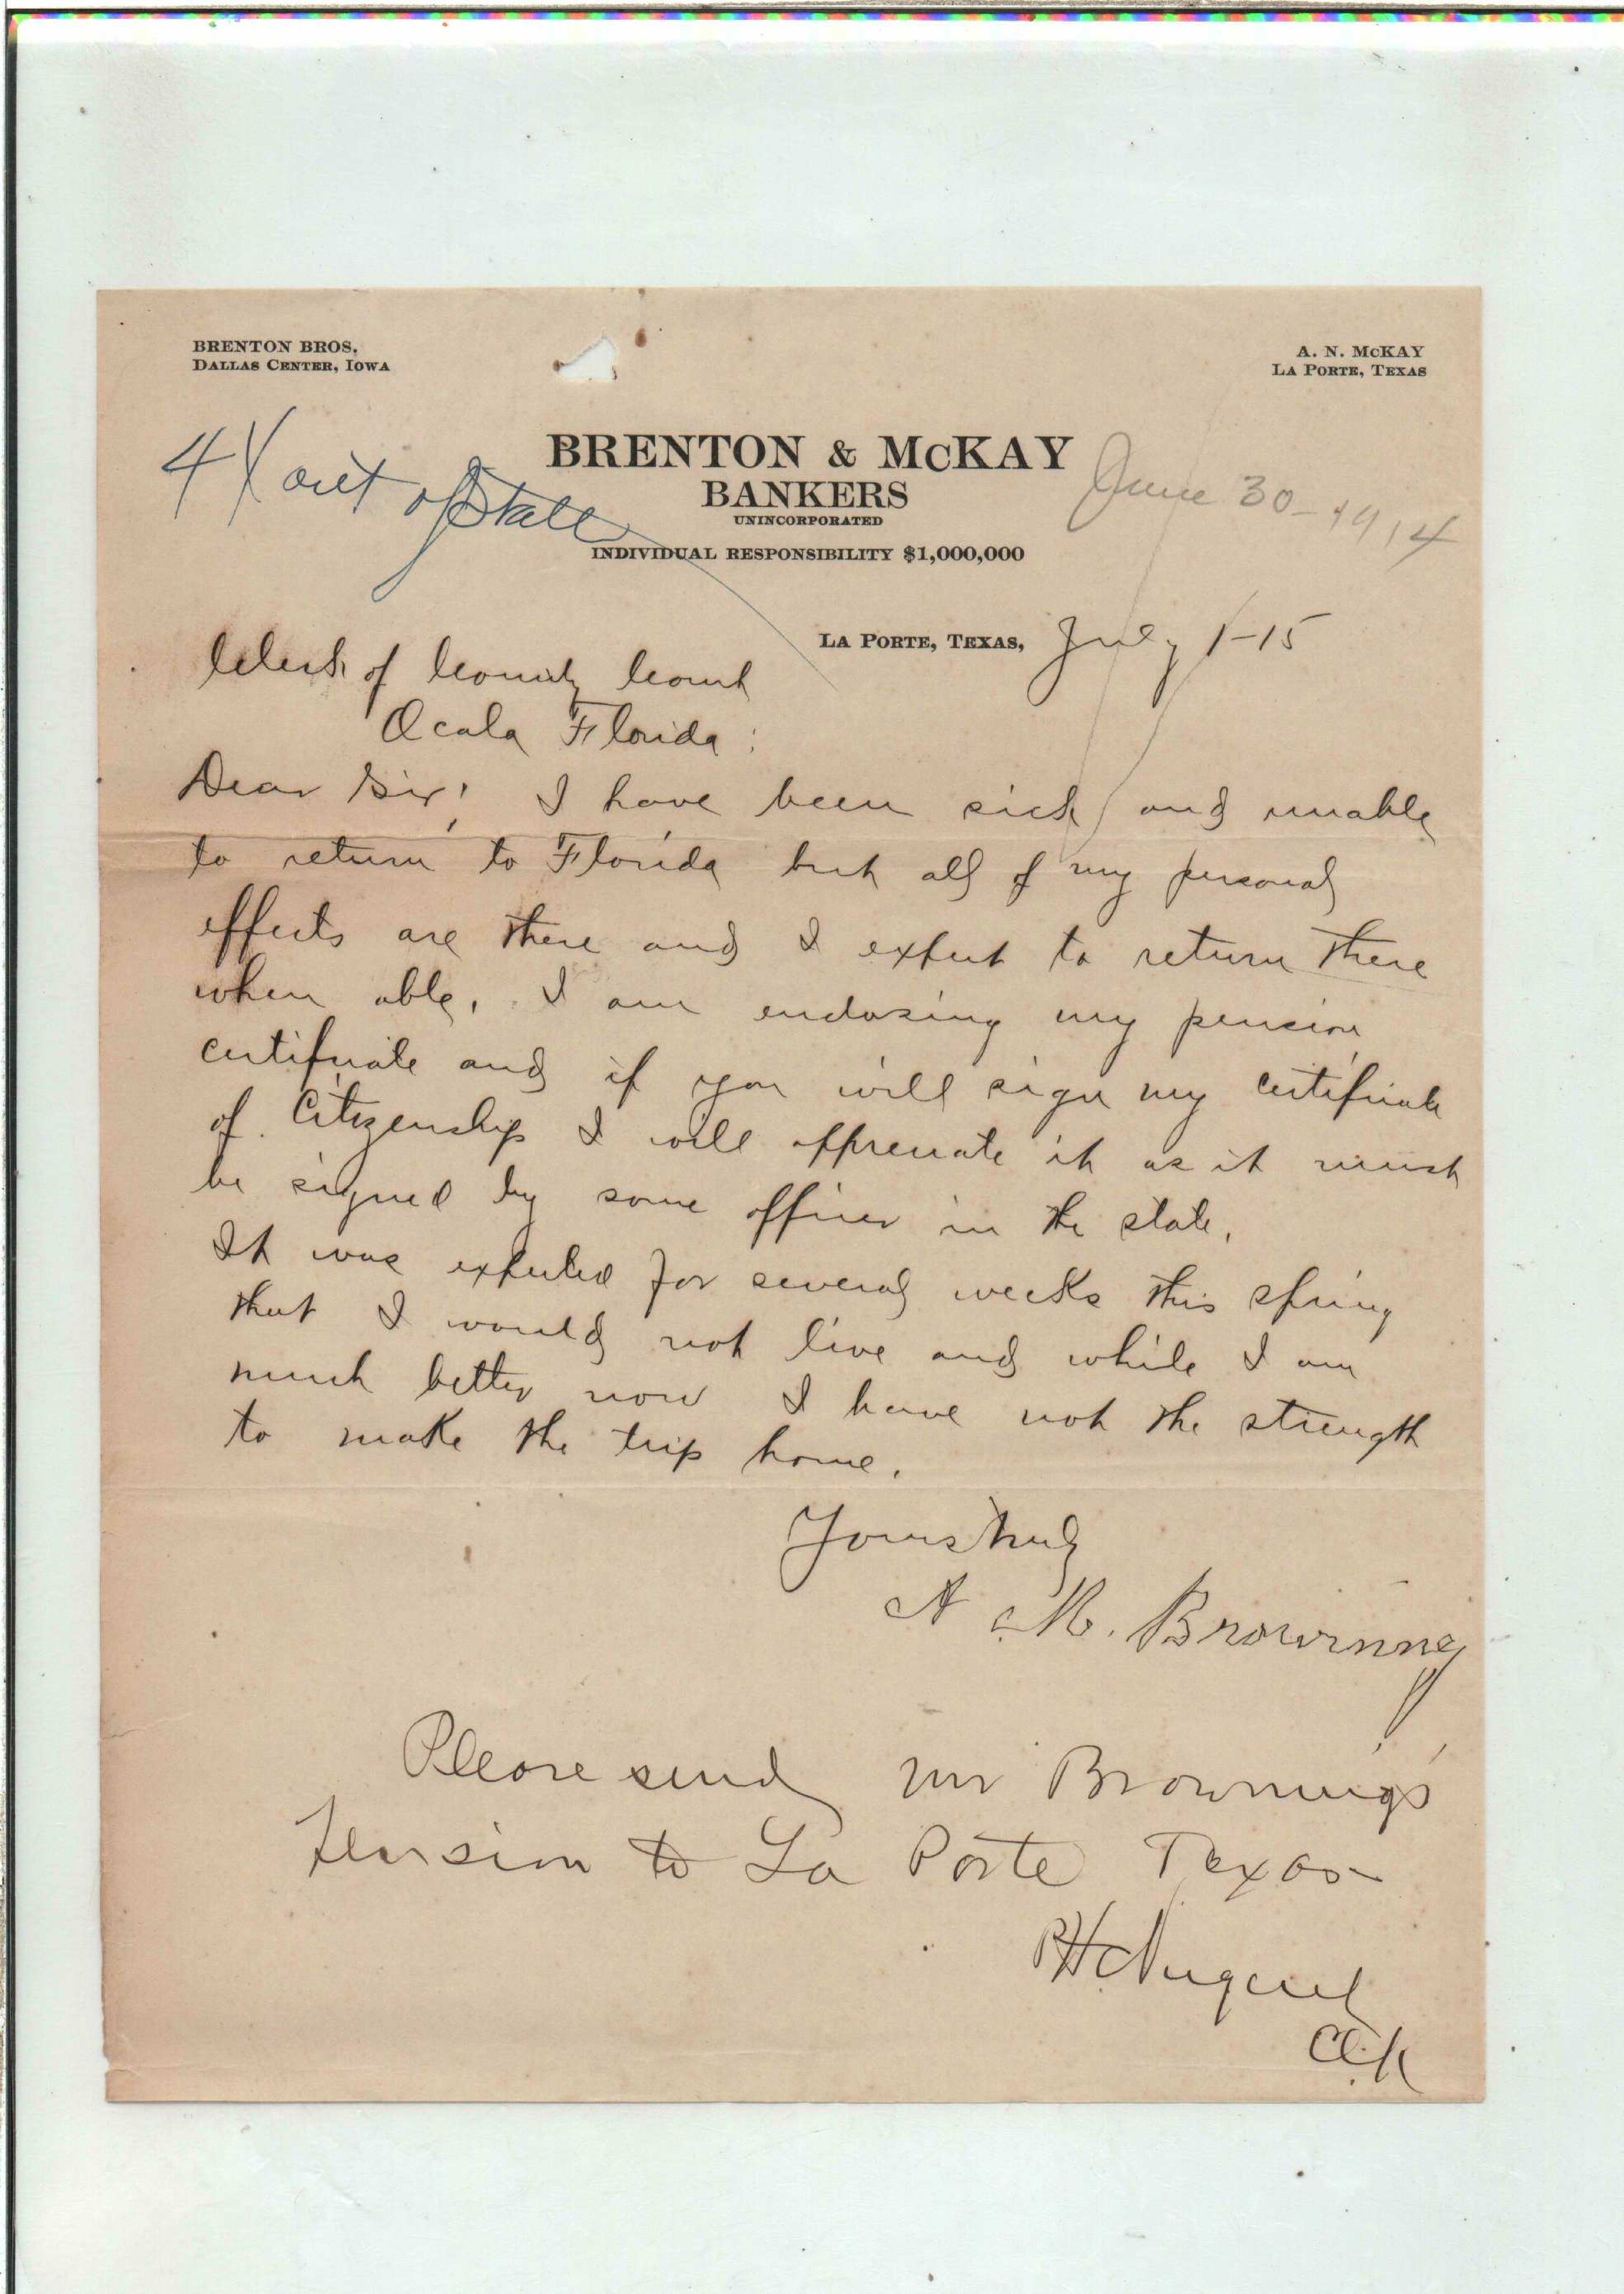 BRENTON BROS.
DALLAS CENTER, IOWA
A. N. McKAY
LA PORTE, TEXAS
BRENTON & McKAY
BANKERS
UNINCORPORATED
INDIVIDUAL RESPONSIBILITY $1,000,000
out of State
June 30-1914
LA PORTE, TEXAS, July 1-15
Clerk of County Court
Ocala Florida:
Dear Sir, I have been sick and unable
to return to Florida but all of my personal
effects are there and I expect to return there
when able, I am enclosing my pension
certificate and if you will sign my certificate
of Citizenship I will appreciate it as it must
be signed by some officer in the state.
It was expected for several weeks this spring
that I would not live and while I am
much better now I have not the strength
to make the trip home.
Yours truly
A M. Browning
Please send Mr Browning's
Pension to La Porte Texas
P H Nugent
Clk